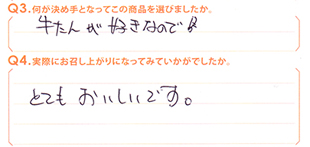 Q3.何が決め手となってこの商品を選びましたか。
牛たんが好きなので
Q4.実際にお召し上がりになってみていかがでしたか。
とてもおいしいです。